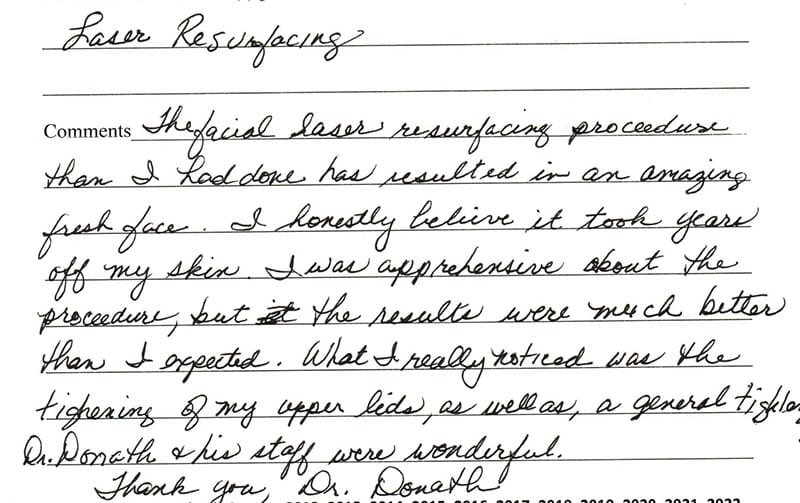 Laser Resurfacing
Comments The facial laser resurfacing proceedure
than I had done has resulted in an amazing
fresh face. I honestly believe it took years
off my skin. I was apprehensive about the
proceedure, but the results were much better
than I expected. What I really noticed was the
tighening of my upper lids, as well as, a general
Dr. Donath & his staff were wonderful.
Thank you, Dr. Donath